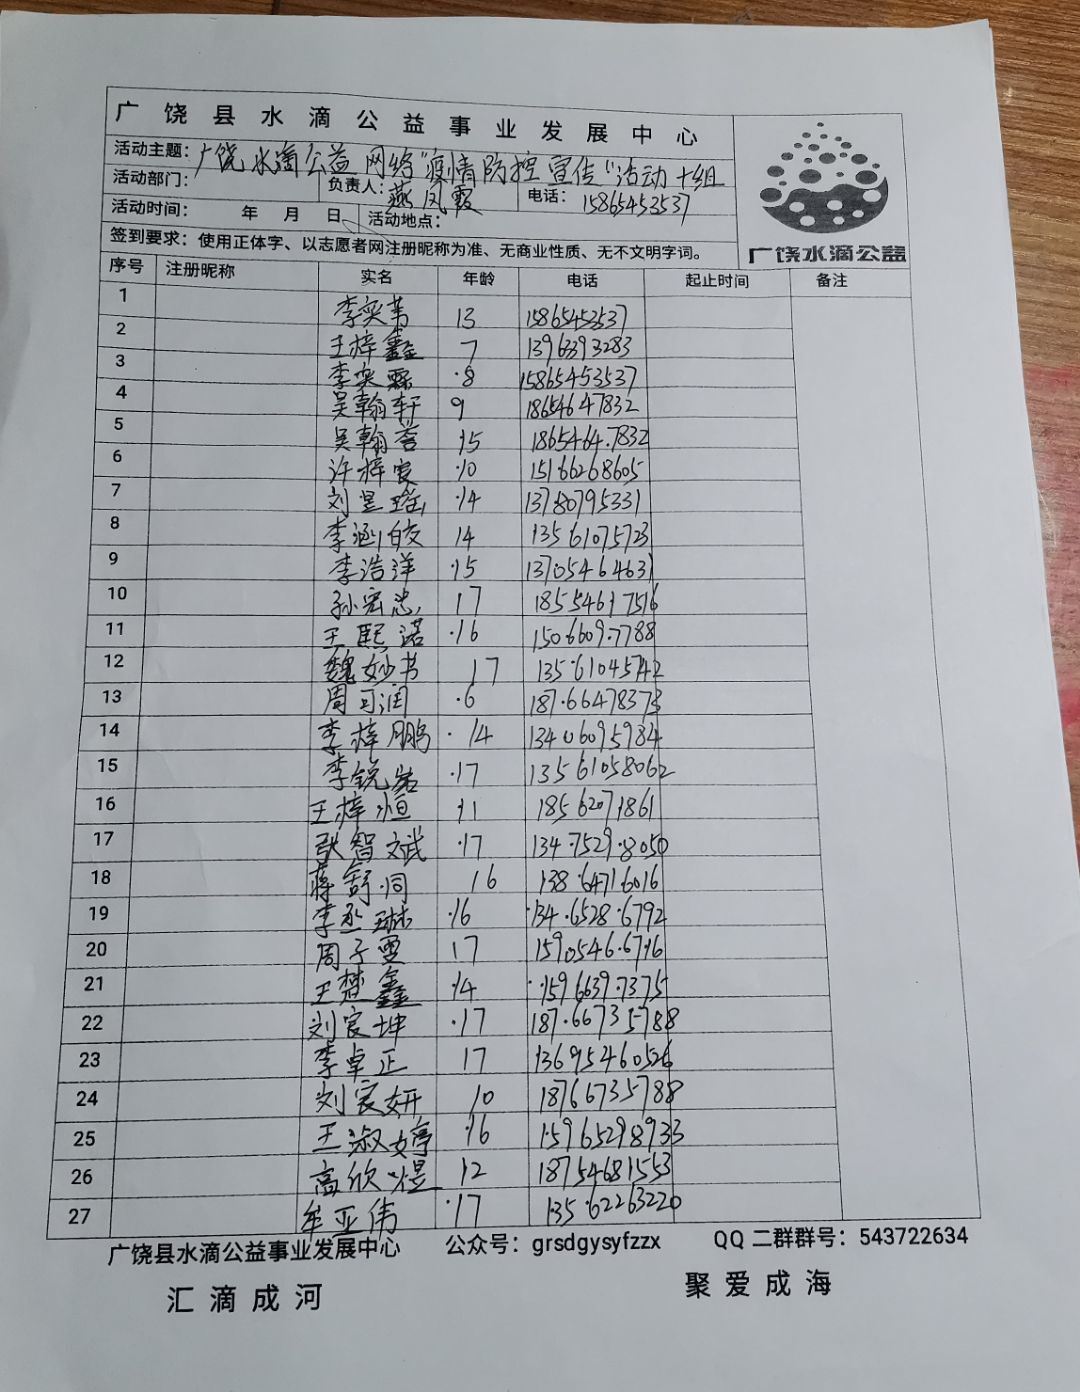 广饶县水滴公益事业发展中心
活动主题：广饶水滴公益网络"疫情防控宣传"活动十组
活动部门： 负责人：燕凤霞 电话：15865453537
活动时间： 年 月 日 活动地点：
签到要求：使用正体字、以志愿者网注册昵称为准、无商业性质、无不文明字词。
广饶水滴公益
序号 注册昵称 实名 年龄 电话 起止时间 备注
1 李奕苇 13 15865453537
2 王梓鑫 7 13963393283
3 李奕霖 8 15865453537
4 吴翰轩 9 18654647832
5 吴翰 15 18654647832
6 许梓宸 10 15166268605
7 刘昱瑶 14 13780795331
8 李涵皎 14 13561075723
9 李浩洋 15 13705464631
10 孙宏忠 17 18554617516
11 王熙诺 16 15066097788
12 魏妙书 17 13561045742
13 周可润 6 18766478373
14 李梓鹏 14 13406095984
15 李锐岩 17 13561058062
16 王梓恒 11 18562071861
17 张智斌 17 13475298050
18 蒋舒同 16 13864716016
19 李丞琳 16 13465286792
20 周子雯 17 15905466716
21 王楚鑫 14 15966397375
22 刘宸坤 17 18766735788
23 李卓正 17 13695460526
24 刘宸妍 10 18766735788
25 王淑婷 16 15965298933
26 高欣煜 12 18754681553
27 牟亚伟 17 13562263220
广饶县水滴公益事业发展中心 公众号：grsdgysyfzzx QQ二群群号：543722634
汇滴成河 聚爱成海